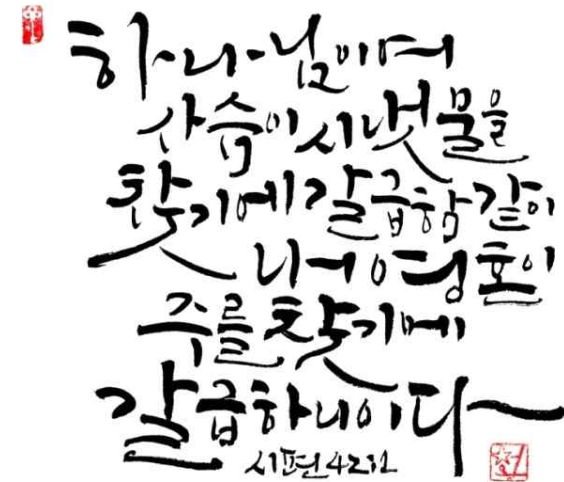 하나님이여
사슴이 시냇물을
찾기에 갈급함 같이
내 영혼이
주를 찾기에
갈급하니이다
시편 42:1